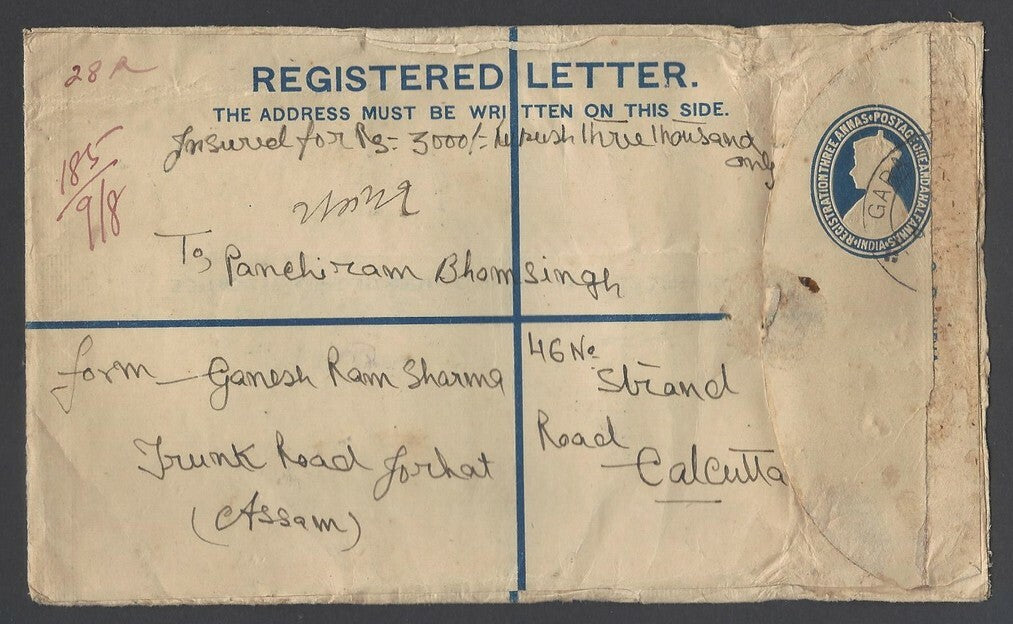 28 R
REGISTERED LETTER.
THE ADDRESS MUST BE WRITTEN ON THIS SIDE.
Insured for Rs- 3000/- Rupesh three thousand
only
185
9/8
To,
Panchiram Bhomsingh
46 No
Strand
Road
Calcutta
form - Ganesh Ram Sharma
Trunk Road Jorhat
(Assam)
REGISTRATION THREE ANNAS • POSTAGE ONE AND A HALF ANNAS • INDIA •
GAR